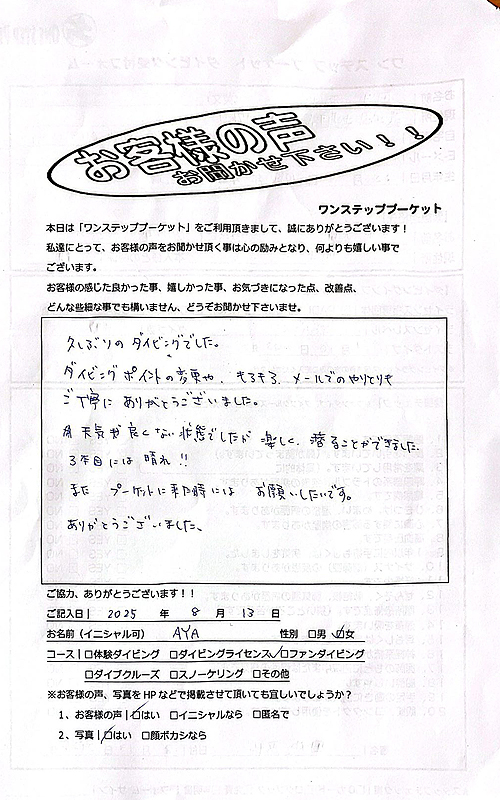 お客様の声
お聞かせ下さい！！
ワンステッププーケット
本日は「ワンステッププーケット」をご利用頂きまして、誠にありがとうございます！
私達にとって、お客様の声をお聞かせ頂く事は心の励みとなり、何よりも嬉しい事で
ございます。
お客様の感じた良かった事、嬉しかった事、お気づきになった点、改善点、
どんな些細な事でも構いません、どうぞお聞かせ下さいませ。
久しぶりのダイビングでした。
ダイビングポイントの変更や、もろもろ、メールでのやりとりも
ご丁寧にありがとうございました。
天気が良くない状態でしたが楽しく、潜ることができました。
3本目には晴れ!!
また プーケットに来た時には お願いしたいです。
ありがとうございました、
ご協力、ありがとうございます！！
ご記入日| 2025 年 8 月 13 日
お名前（イニシャル可） AYA 性別 □男 ☑女
コース| □体験ダイビング □ダイビングライセンス ☑ファンダイビング
□ダイブクルーズ □スノーケリング □その他
※お客様の声、写真を HP などで掲載させて頂いても宜しいでしょうか？
1、お客様の声| ☑はい □イニシャルなら □匿名で
2、写真| ☑はい □顔ボカシなら